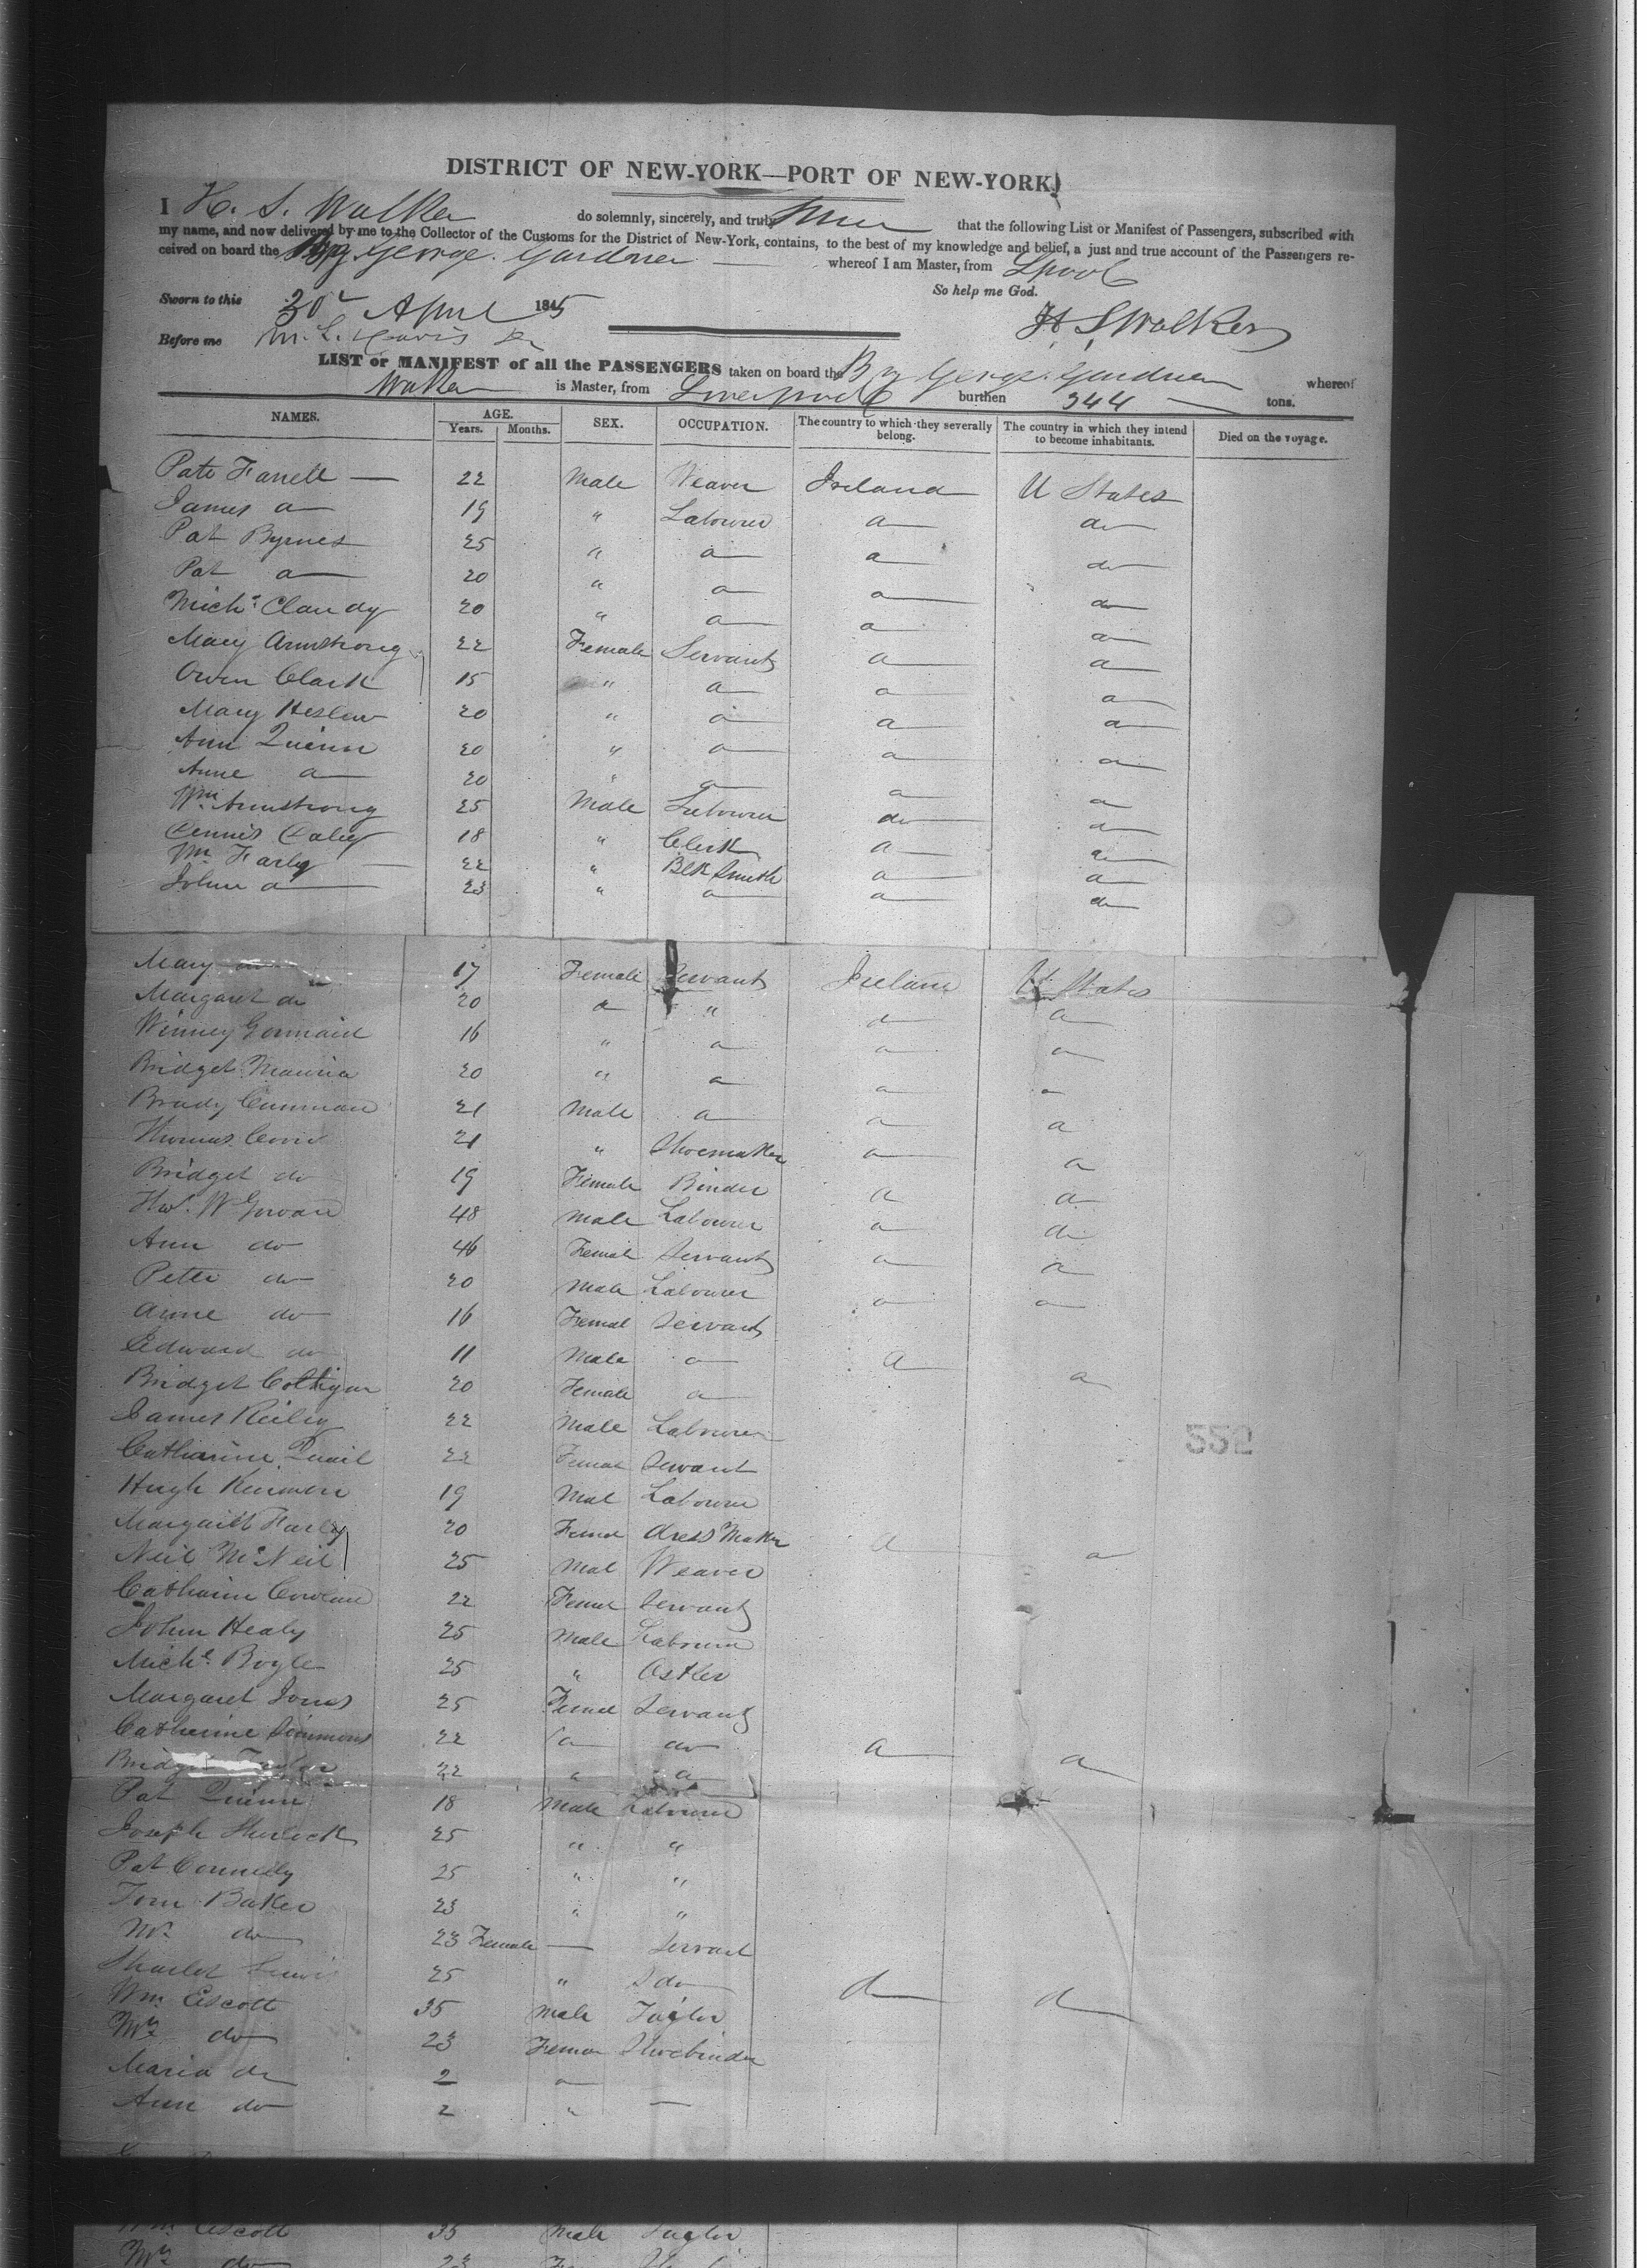 DISTRICT OF NEW-YORK—PORT OF NEW-YORK
I H. S. Walker do solemnly, sincerely, and truly that the following List or Manifest of Passengers, subscribed with
my name, and now delivered by me to the Collector of the Customs for the District of New-York, contains, to the best of my knowledge and belief, a just and true account of the Passengers re-
ceived on board the Brig George Gardner whereof I am Master, from Lpool
So help me God.
Sworn to this 30 April 1845
H. S. Walker
Before me
LIST or MANIFEST of all the PASSENGERS taken on board the Brig George Gardner whereof
Walker is Master, from Liverpool burthen 344 tons.
NAMES. AGE. Years. Months. SEX. OCCUPATION. The country to which they severally belong. The country in which they intend to become inhabitants. Died on the voyage.
Pat Farrell — 22 Male Weaver Ireland U States
James do 19 " Labourer do do
Pat Byrnes 25 " do do do
Pat do 20 " do do do
Mich. 20 " do do do
Mary Armstrong 22 Female Servant do do
Owen Clark 15 " do do do
Mary 20 " do do do
Ann Quinn 20 " do do do
Anne do 20 " do do do
Wm Armstrong 25 Male Labourer do do
Dennis 18 " Clerk do do
Wm Farly — 22 " Blk Smith do do
John do 23 " do do do
Mary do 17 Female Servant Ireland U States
Margaret do 20 do " do do
Winney 16 " do do do
Bridget 20 " do do do
Brady 21 Male do do do
Thomas 21 " Shoemaker do do
Bridget do 19 Female Binder do do
48 Male Labourer do do
Ann do 46 Female Servant do do
Peter do 20 Male Labourer do do
Anne do 16 Femal Servant
Edward do 11 Male do do
Bridget 20 Female do do
James Reiley 22 Male Labourer
Catharine Quail 22 Femal Servant
Hugh 19 Mal Labourer
Margaret Farly 20 Femal dress Maker do do
Neil McNeil 25 Mal Weaver
Catharin 22 Femal Servant
John Healy 25 Male Labourer
Mich. Boyle 25 " Ostler
Margaret Jones 25 Femal Servant
Catherine Simmons 22 do do do do
Bridget Taylor 22 " do
Pat Quinn 18 Male Labourer
Joseph 25 " "
Pat Connelly 25 " "
Tom Baker 23 " "
Mrs do 23 Female — Servant
Lewis 25 " do do do
Wm Escott 35 Male Taylor
Mrs do 23 Femal Shoebinder
Maria do 2 do
Ann do 2 " —
552
Wm Escott 35 Male Taylor
Mrs do 23